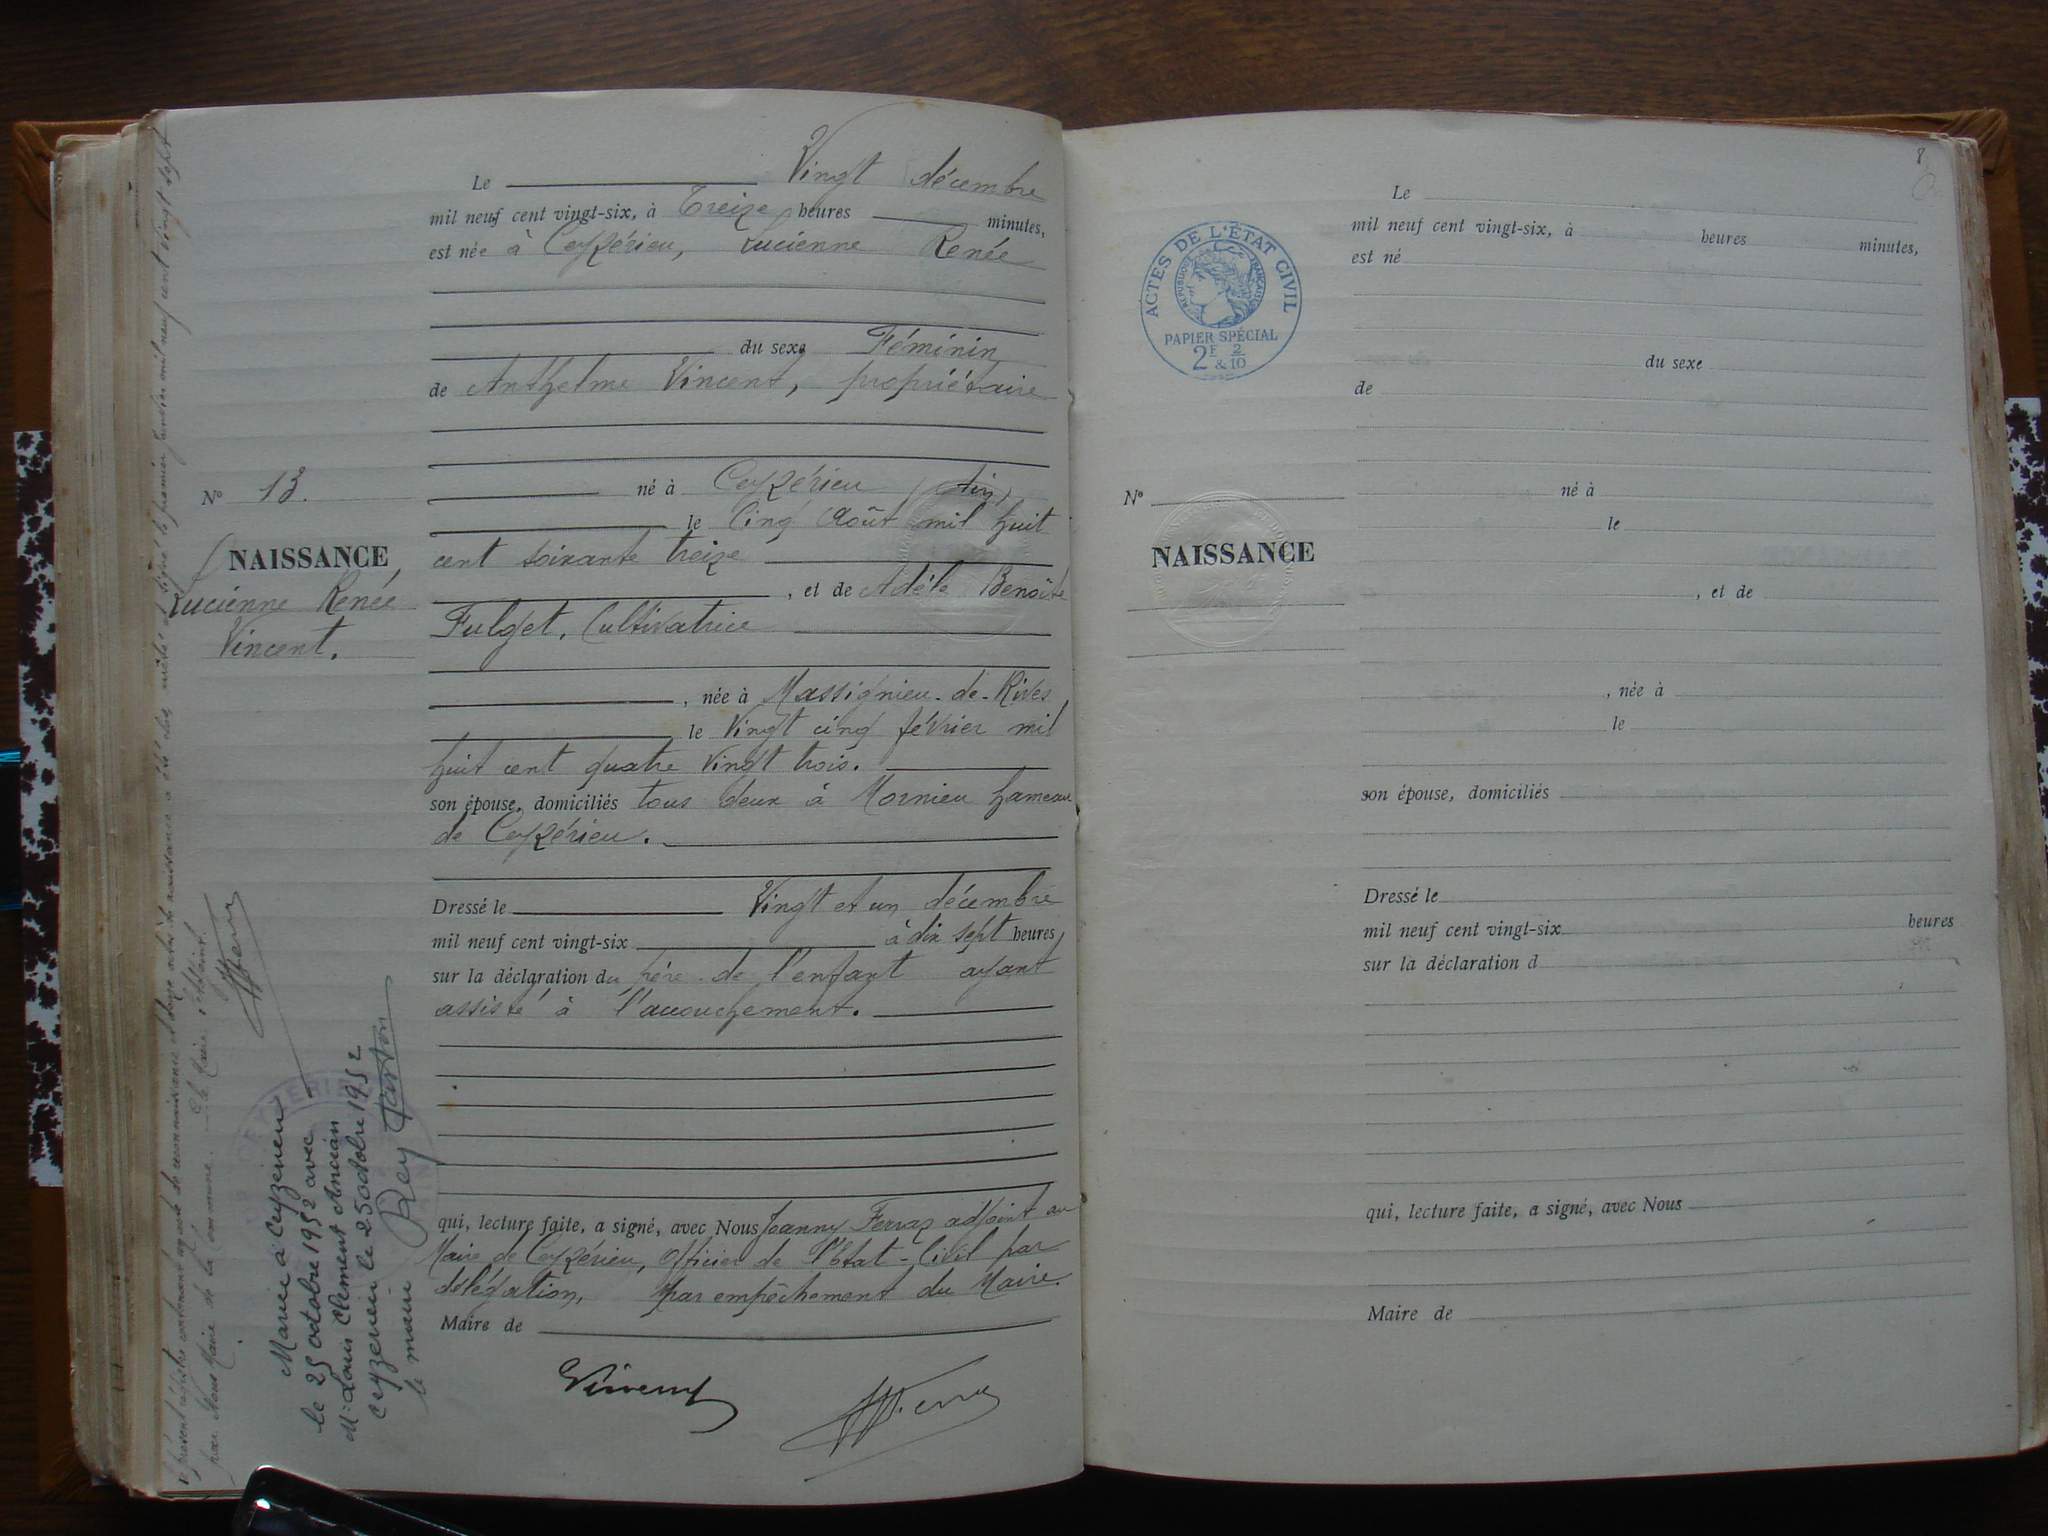 Le Vingt décembre
mil neuf cent vingt-six, à Treize heures minutes,
est née à Ceyzérieu, Lucienne Renée
du sexe Féminin
de Anthelme Vincent, propriétaire
né à Ceyzérieu (Ain)
le Cinq Août mil huit
cent soixante treize
, et de Adèle Benoîte
Fulget, Cultivatrice
, née à Massignieu-de-Rives
le Vingt cinq février mil
huit cent quatre vingt trois.
son épouse, domiciliés tous deux à Mornieu hameau
de Ceyzérieu.
Dressé le Vingt et un décembre
mil neuf cent vingt-six à dix sept heures
sur la déclaration du père de l'enfant ayant
assisté à l'accouchement.
qui, lecture faite, a signé, avec Nous Joanny Ferraz adjoint au
Maire de Ceyzérieu, Officier de l'Etat-Civil par
délégation, par empêchement du Maire.
Maire de
Vincent
No 13.
NAISSANCE
Lucienne Renée
Vincent.
Marié à Ceyzérieu
le 25 octobre 1952 avec
Mr Louis Clément Ancian
Ceyzerieu le 25 octobre 1952
le maire
Rey
présent registre contenant de reconnaissance et treize actes de naissance a été clos, arrêté et signé le premier janvier mil neuf cent vingt sept
par Nous Maire de la commune. Le Maire
8
ACTES DE L'ÉTAT CIVIL
RÉPUBLIQUE FRANÇAISE
PAPIER SPÉCIAL
2F & 2/10
Le
mil neuf cent vingt-six, à heures minutes,
est né
du sexe
de
né à
le
, et de
, née à
le
son épouse, domiciliés
Dressé le
mil neuf cent vingt-six heures
sur la déclaration d
qui, lecture faite, a signé, avec Nous
Maire de
No
NAISSANCE